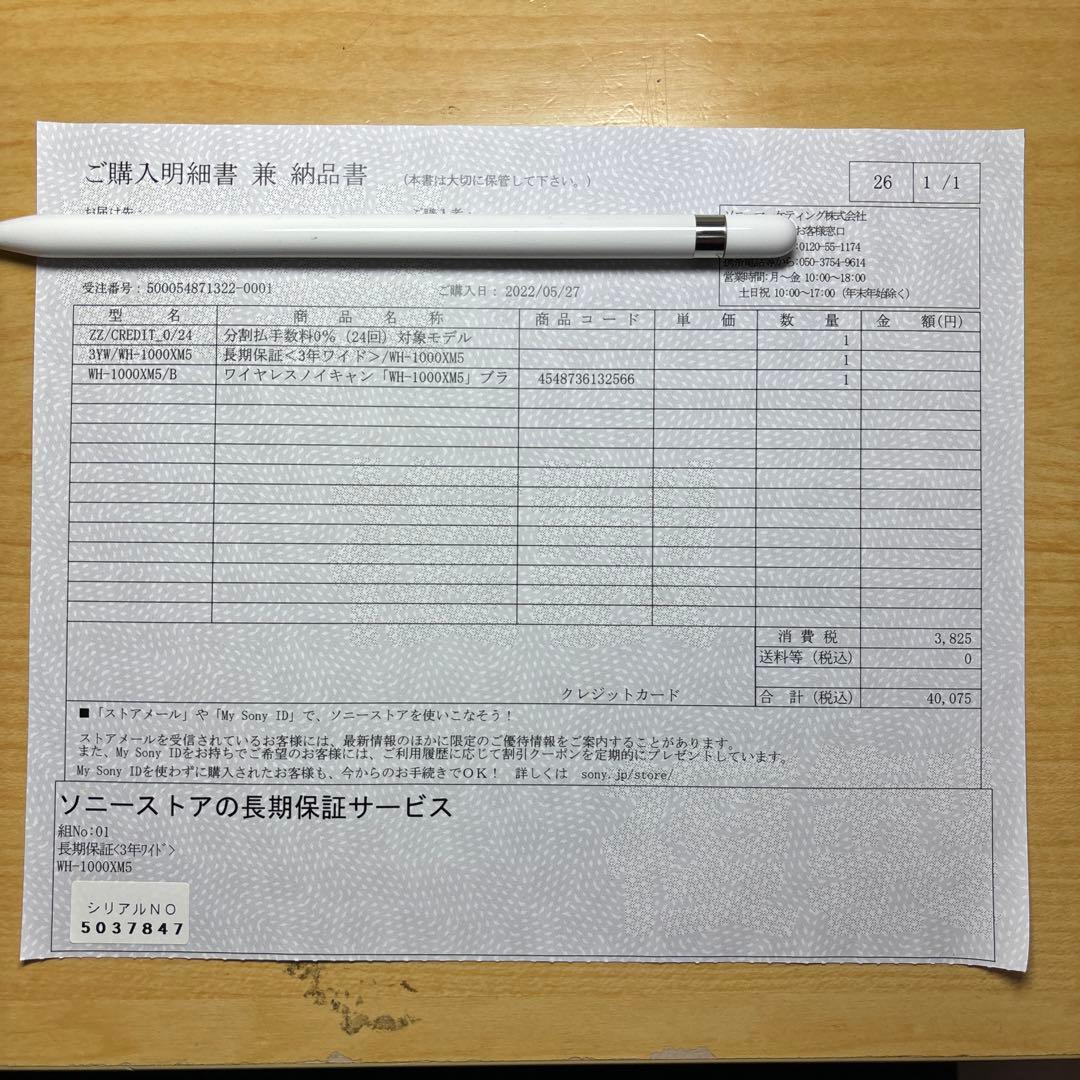 ご購入明細書 兼 納品書 (本書は大切に保管して下さい。)
26 1 /1
お届け先:
ご購入者:
ティング株式会社
お客様窓口
:0120-55-1174
携帯電話等から:050-3754-9614
営業時間:月～金 10:00～18:00
土日祝 10:00～17:00 (年末年始除く)
受注番号: 500054871322-0001 ご購入日: 2022/05/27
型 名 商 品 名 称 商 品 コ ー ド 単 価 数 量 金 額(円)
ZZ/CREDIT_0/24 分割払手数料0% (24回) 対象モデル 1
3YW/WH-1000XM5 長期保証<3年ワイド>/WH-1000XM5 1
WH-1000XM5/B ワイヤレスノイキャン「WH-1000XM5」ブラ 4548736132566 1
消 費 税 3,825
送料等 (税込) 0
クレジットカード 合 計 (税込) 40,075
■「ストアメール」や「My Sony ID」で、ソニーストアを使いこなそう!
ストアメールを受信されているお客様には、最新情報のほかに限定のご優待情報をご案内することがあります。
また、My Sony IDをお持ちでご希望のお客様には、ご利用履歴に応じて割引クーポンを定期的にプレゼントしています。
My Sony IDを使わずに購入されたお客様も、今からのお手続きでOK! 詳しくは sony.jp/store/
ソニーストアの長期保証サービス
組No:01
長期保証<3年ﾜｲﾄﾞ>
WH-1000XM5
シリアルNO
5037847